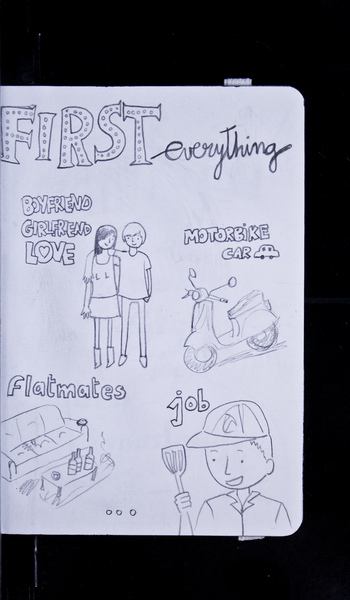 FIRST everything
BOYFRIEND
GIRLFRIEND
LOVE
MOTORBIKE
CAR
Flatmates
job
...